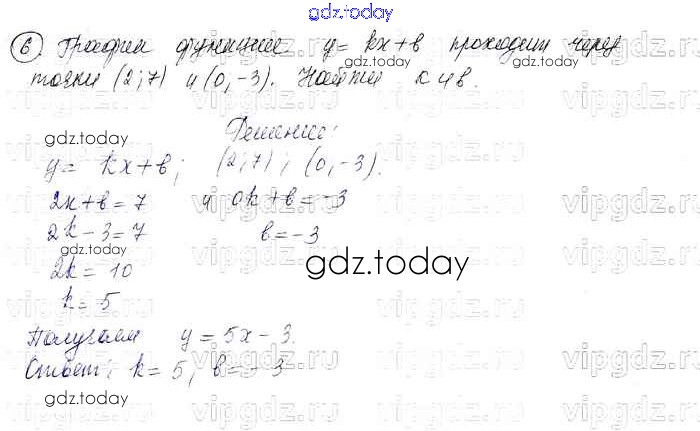 gdz.today
6 График функции y = kx + b проходит через
точки (2; 7) и (0, -3). Найти k и b.
gdz.today
Решение:
y = kx + b; (2; 7); (0, -3).
2k + b = 7 и 0k + b = -3
2k - 3 = 7 b = -3
gdz.today
2k = 10
gdz.today
k = 5
Получаем y = 5x - 3.
Ответ: k = 5; b = -3
gdz.today
vipgdz.ru